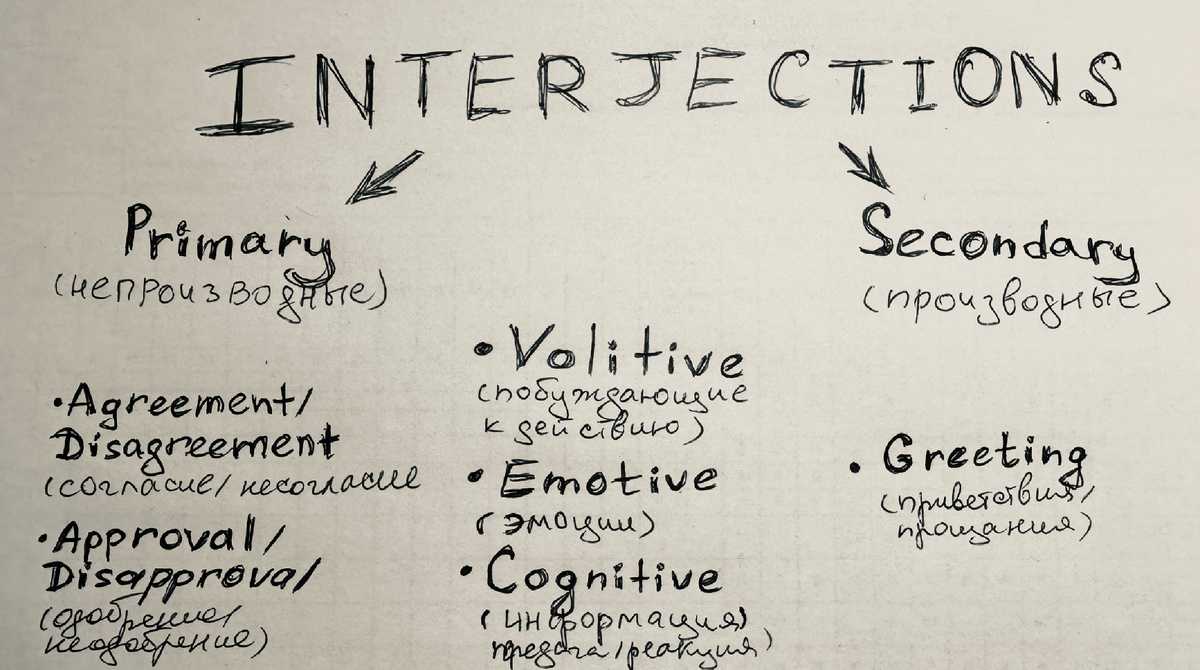 INTERJECTIONS
Primary
(непроизводные)
Secondary
(производные)
• Agreement/
Disagreement
(согласие/несогласие
• Approval/
Disapproval
(одобрение/
неодобрение)
• Volitive
(побуждающие
к действию)
• Emotive
(эмоции)
• Cognitive
(информация)
/реакция)
• Greeting
(приветствия/
прощания)